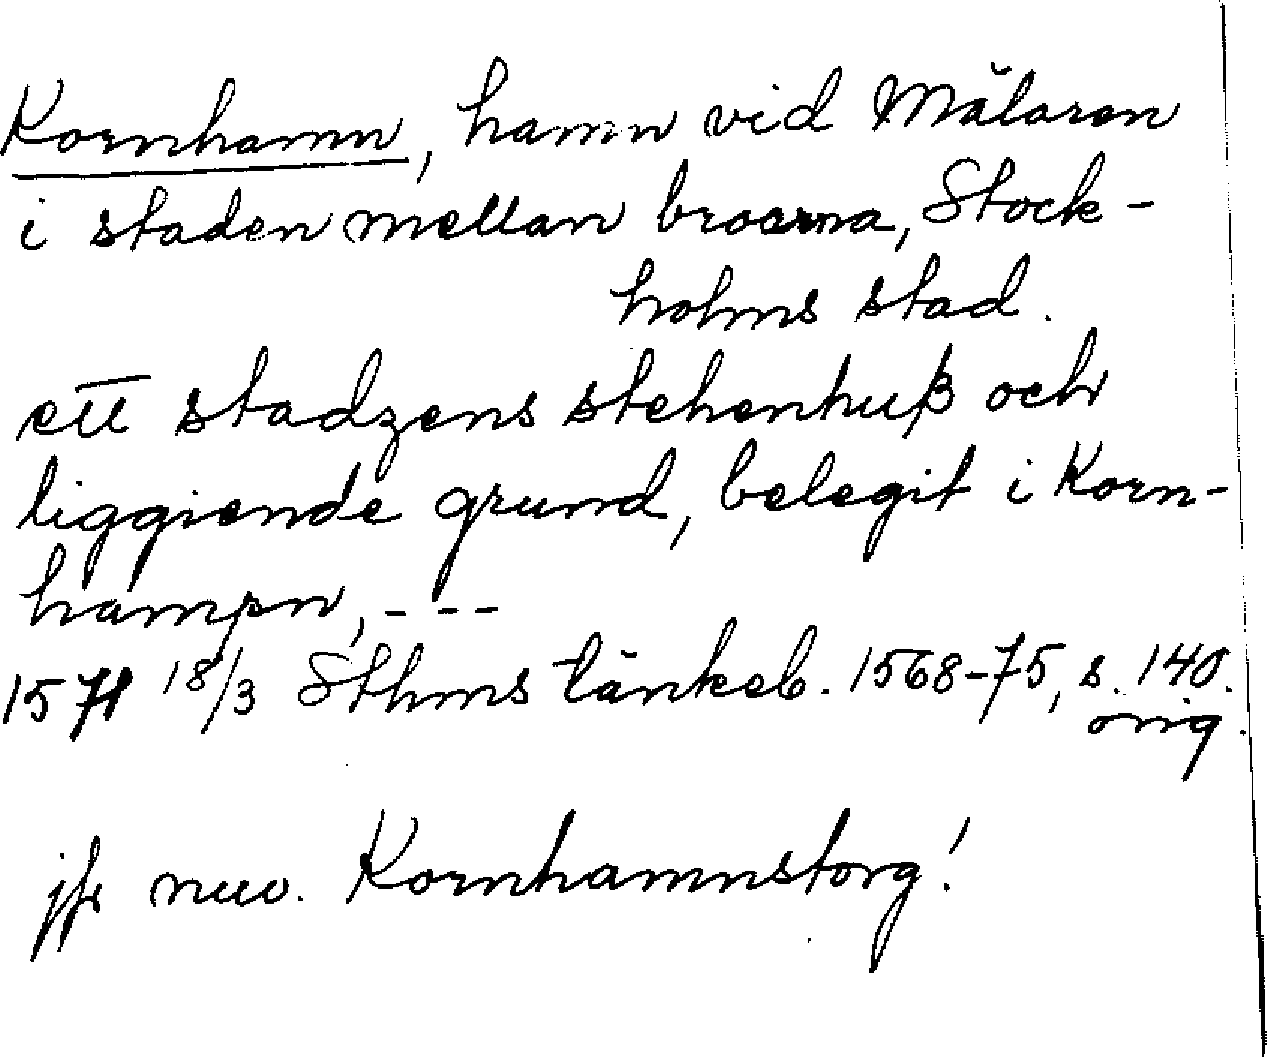 Kornhamn, hamn vid Mälaren
i staden mellan broarna, Stock-
holms stad.
ett stadzens stehenhuß och
liggiende grund, belegit i Korn-
hampn, - - -
1571 18/3 Sthms tänkeb. 1568-75, s. 140.
orig.
jfr nuv. Kornhamnstorg!